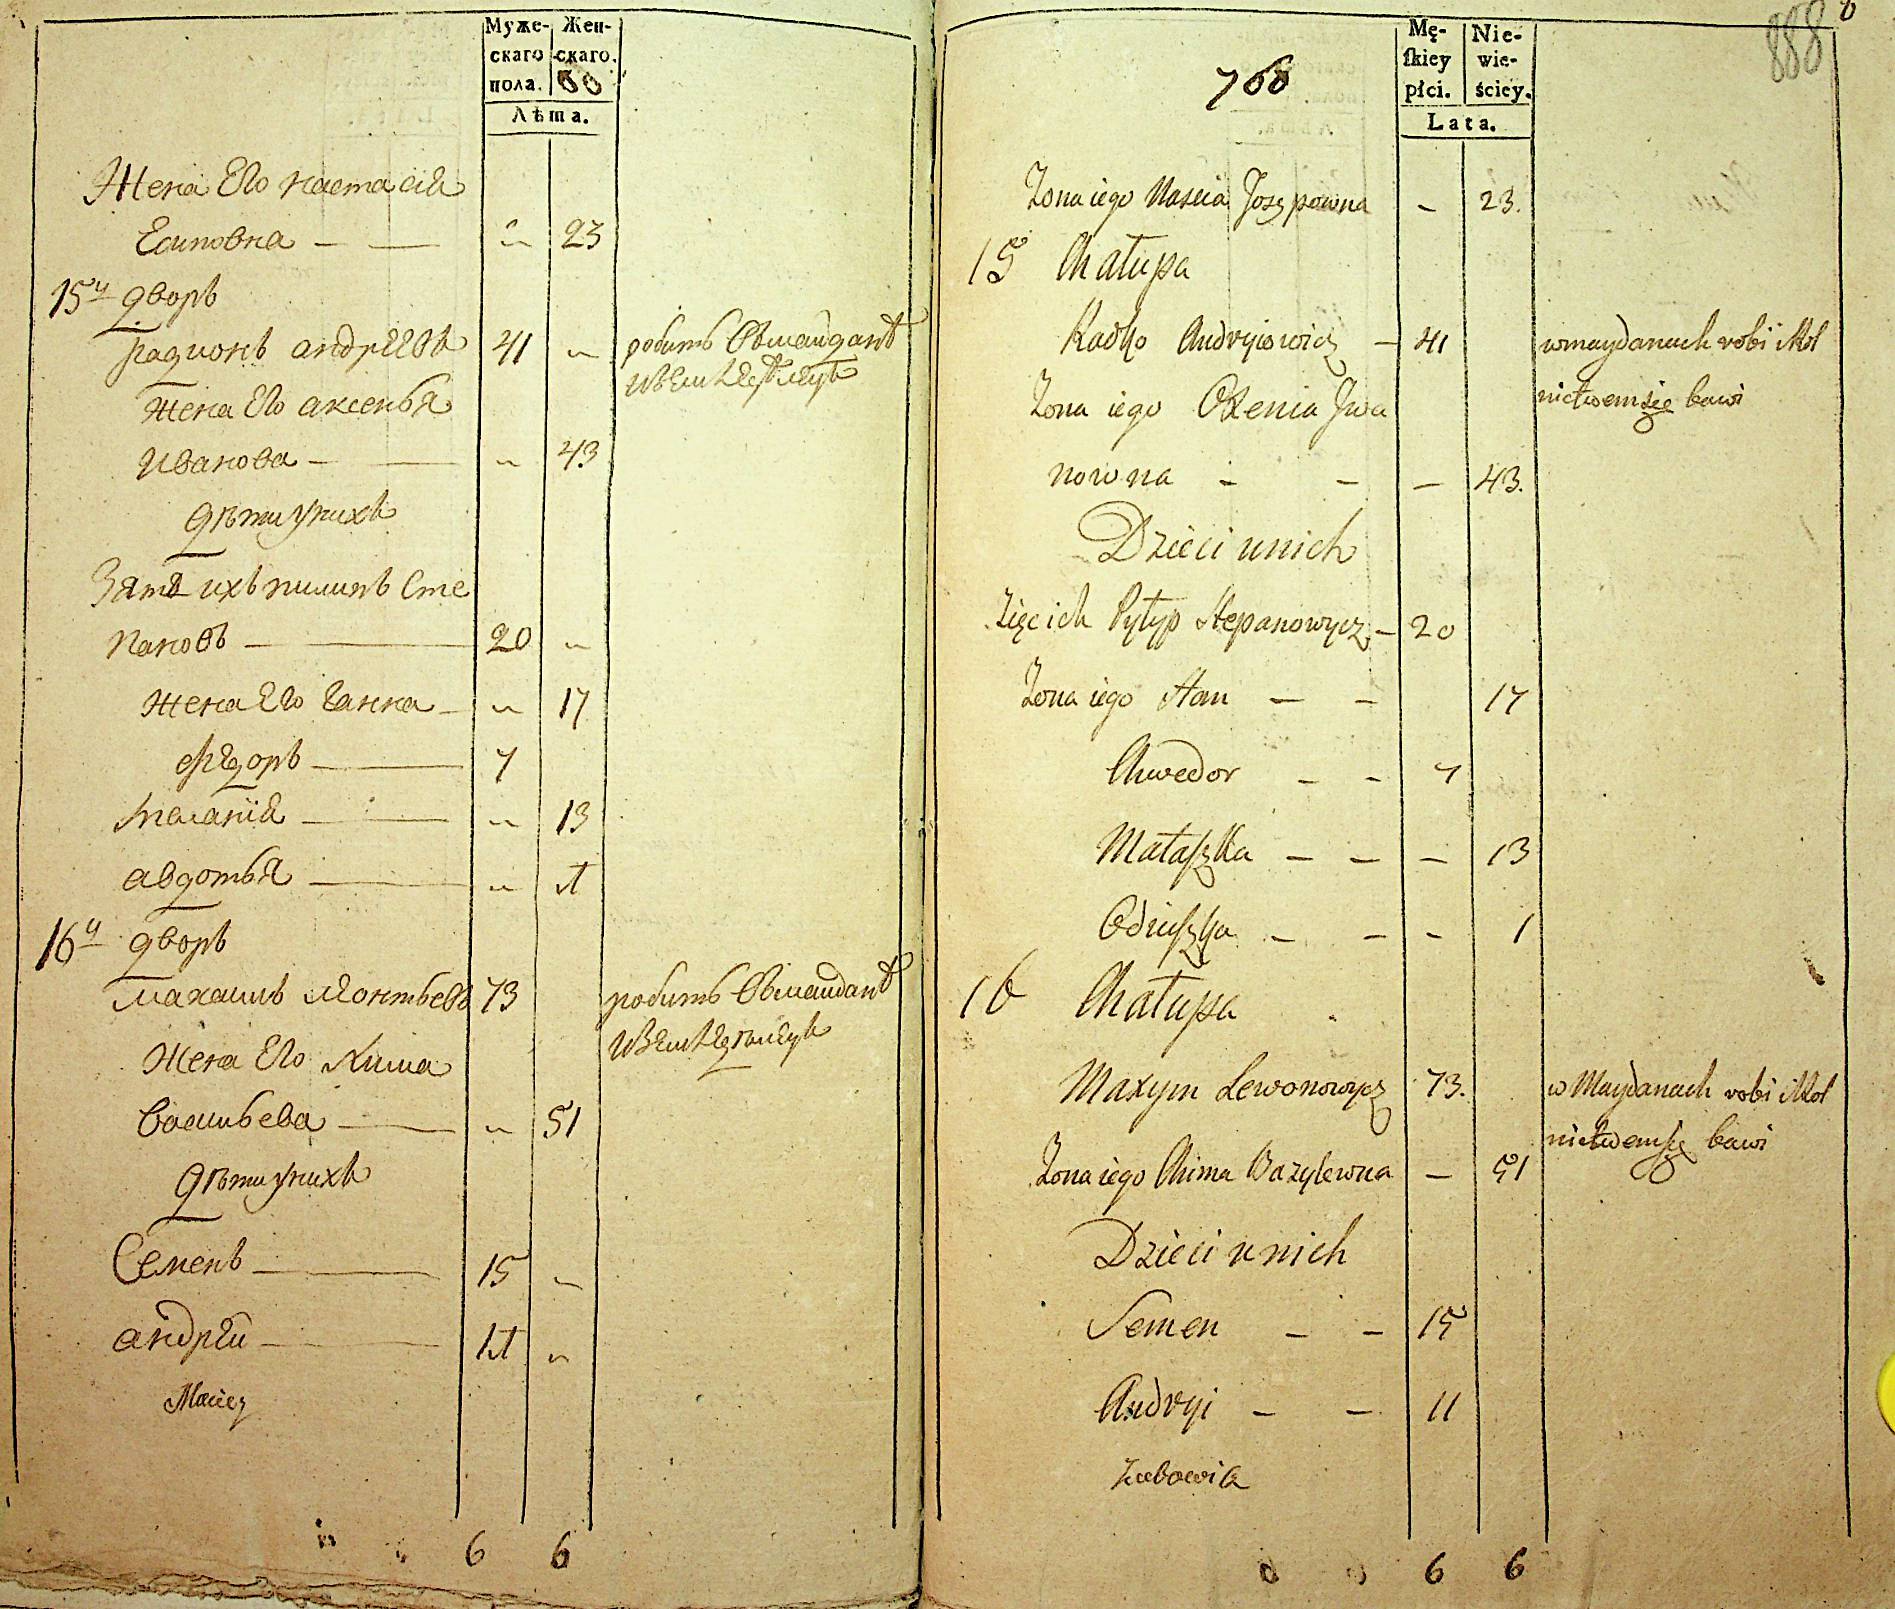 Муже-
скаго
пола.
Жен-
скаго.
Лѣта.
Жена Его настасія
Есиповна — — 23
15й дворъ
радионъ андрѣевъ 41
робитъ Овмайданѣ
жена Его аксенья
Иванова — — 43
дѣти унихъ
Зять ихъ пилипъ Сте
пановъ — — 20
жена Его ганна — 17
ѳедоръ — 7
маланія — — 13
авдотья — 1
16й дворъ
махаимъ леонтьевъ 73
робитъ Овмайданѣ
Жена Его Хима
Васильева — — 51
дѣти унихъ
Семенъ — 15
андрѣй — 11
Maciey
6 6
888
760
Mę-
ſkiey
płci.
Nie-
wie-
ściey.
Lata.
Zona iego Nascia Jozypowna - 23.
15 Chałupa
Radko Andryiowicz - 41
wmaydanach robi i Rol
nictwem się bawi
Zona iego Oxenia Iwa
nowna - - - 43.
Dzieci unich
Zięć ich Pyłyp Stepanowycz - 20
Zona iego Han - - 17
Chwedor - - 7
Małaſzka - - - 13
Odiuſzka - - - 1
16 Chałupa
Maxym Lewonowycz 73.
w Maydanach robi i Rol
nictwem ſię bawi
Zona iego Chima Bazylewna - 51
Dzieci u nich
Semen - - 15
Andryi - - 11
Zubowik
6 6